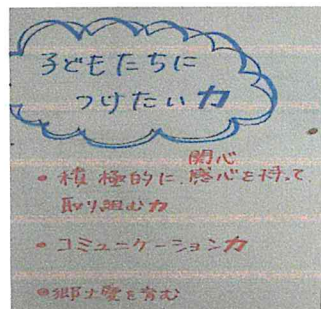 子どもたちに
つけたい力
関心
• 積極的に、感心を持って
取り組む力
• コミュニケーション力
• 郷土愛を育む